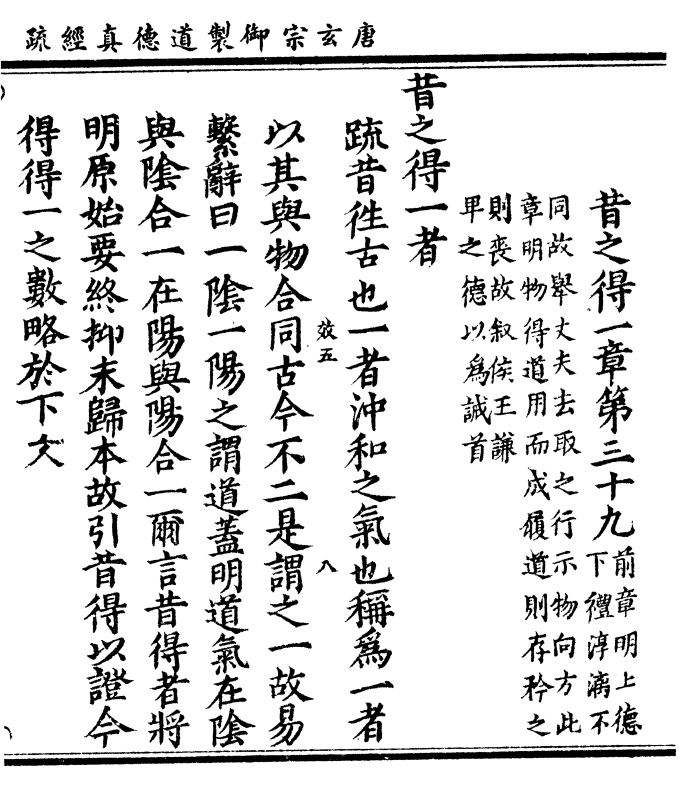 唐玄宗御製道德真經疏
昔之得一章第三十九
前章明上德
下禮淳漓不
同故舉丈夫去取之行示物向方此
章明物得道用而成履道則存矜之
則喪故叙侯王謙
卑之德以爲誡首
昔之得一者
疏昔徃古也一者沖和之氣也稱爲一者
效五
八
以其與物合同古今不二是謂之一故易
繫辭曰一隂一陽之謂道蓋明道氣在隂
與隂合一在陽與陽合一爾言昔得者將
明原始要終抑末歸本故引昔得以證今
得得一之數略於下文